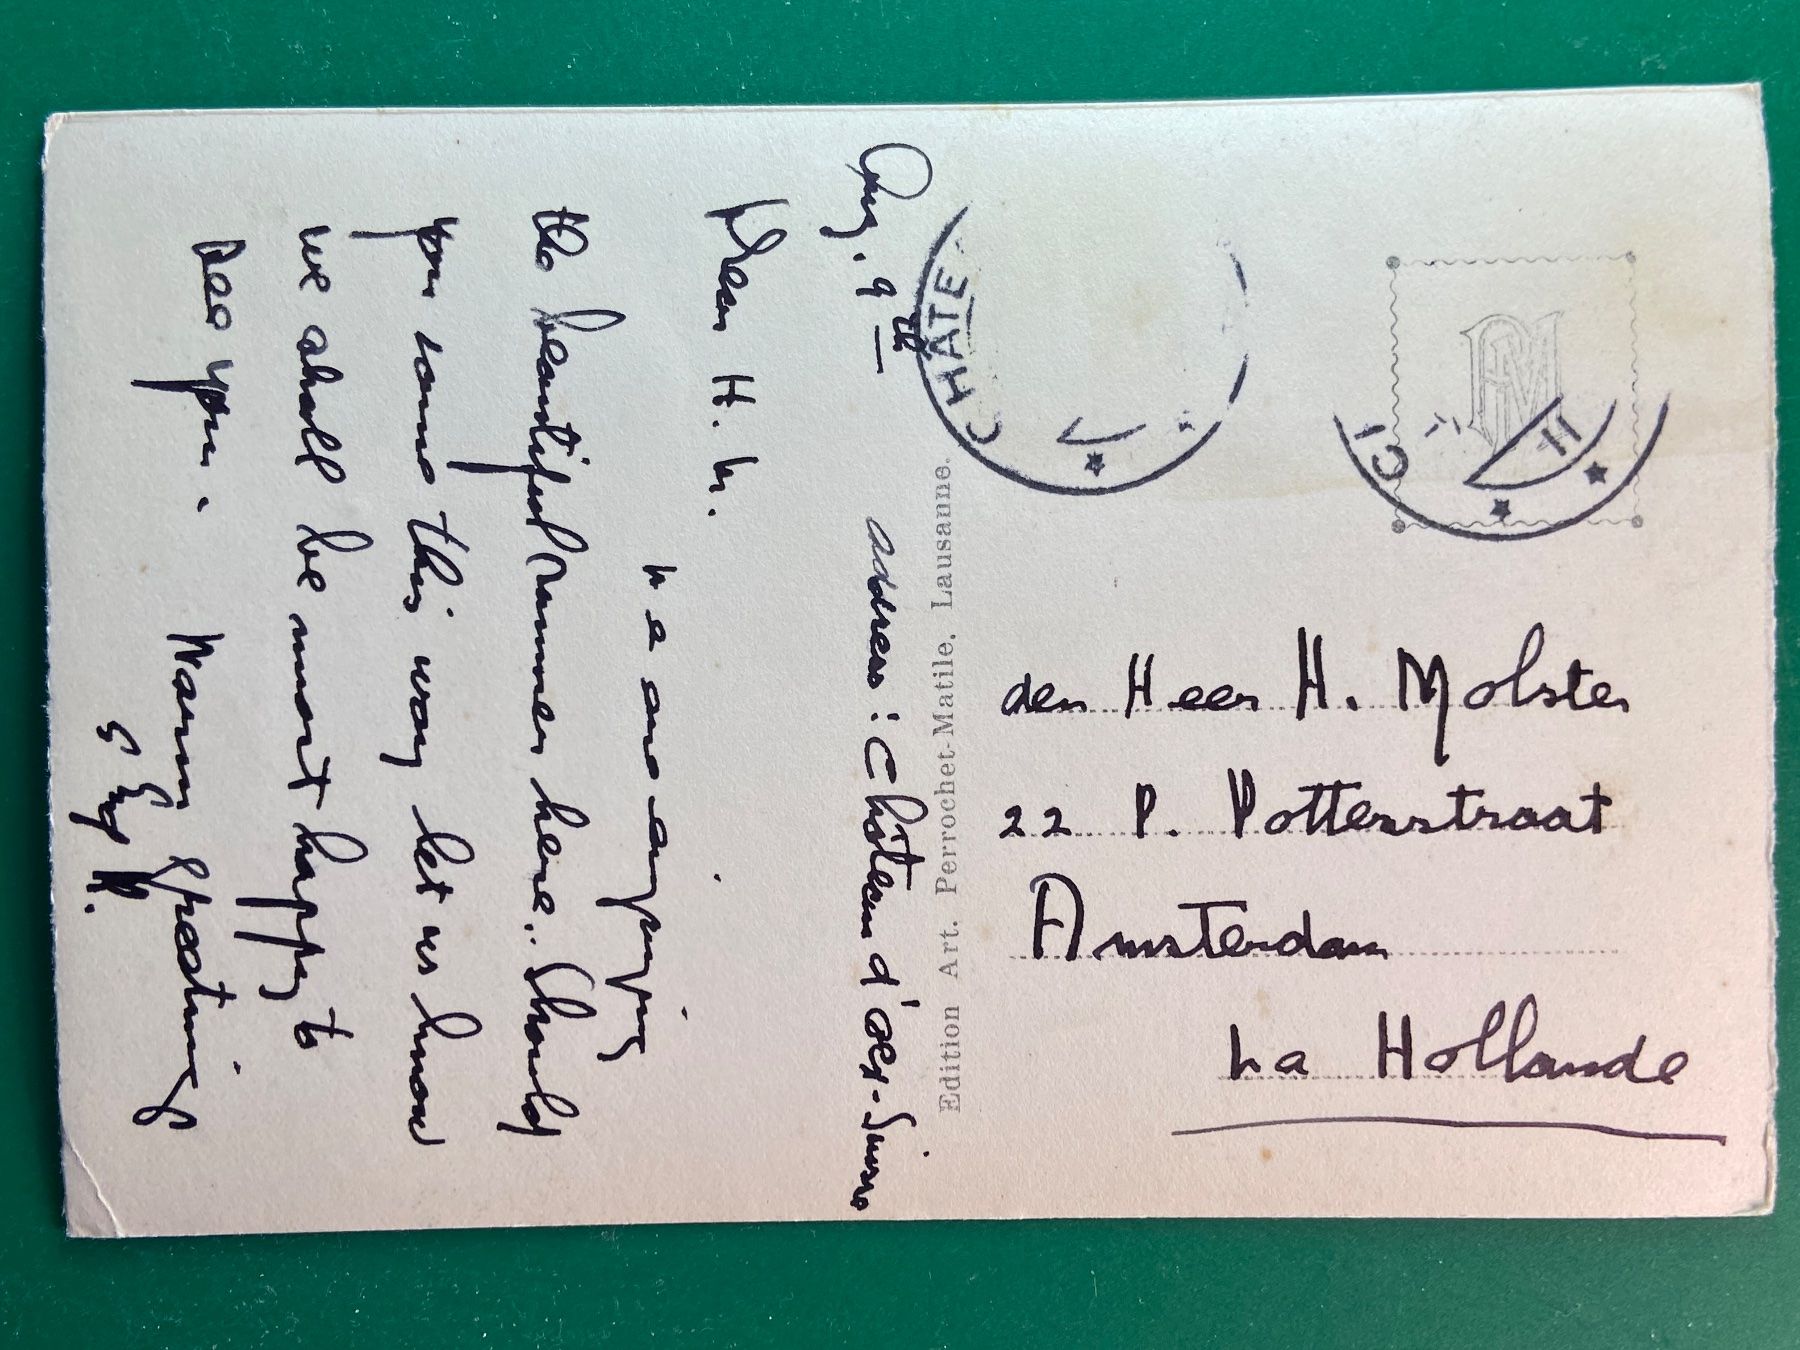 Aug. 9th
address: Château d'oex-Suisse
Dear H. M.
We are enjoying
the beautiful summer here. Should
you come this way let us know
we shall be most happy to
see you.
Warm greeting
CHATE
Edition Art. Perrochet-Matile, Lausanne.
PM
den Heer H. Molster
22 P. Potterstraat
Amsterdam
La Hollande